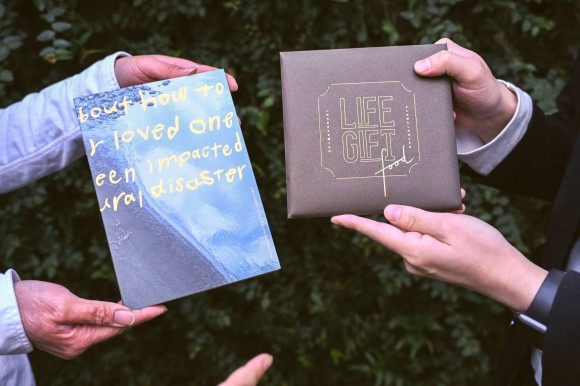 bout how to
r loved one
een impacted
ural disaster
LIFE
GIFT
food